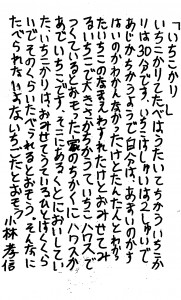 「いちごかり」
いちごかりでたべほうだいでちがういちごか
りは30分です。いちごはしゅるいがしゅいで
あじがちがうようで白人は、あまいのがす
はいのかわかんなかったけどたんたんとわか
いちごのなまえわすれたけどおみせでみ
るいちごで大きさがちがっていちごハウスが
つくているとおもった家のちかくにハウスが
あていちごです。そこにあるくとにおいしてい
たいちごかりは、おみせでうているひとぱくくら
いでそのくらいたべられるとおもう。そんなに
たべられないよないちごだとおもう
小林孝信